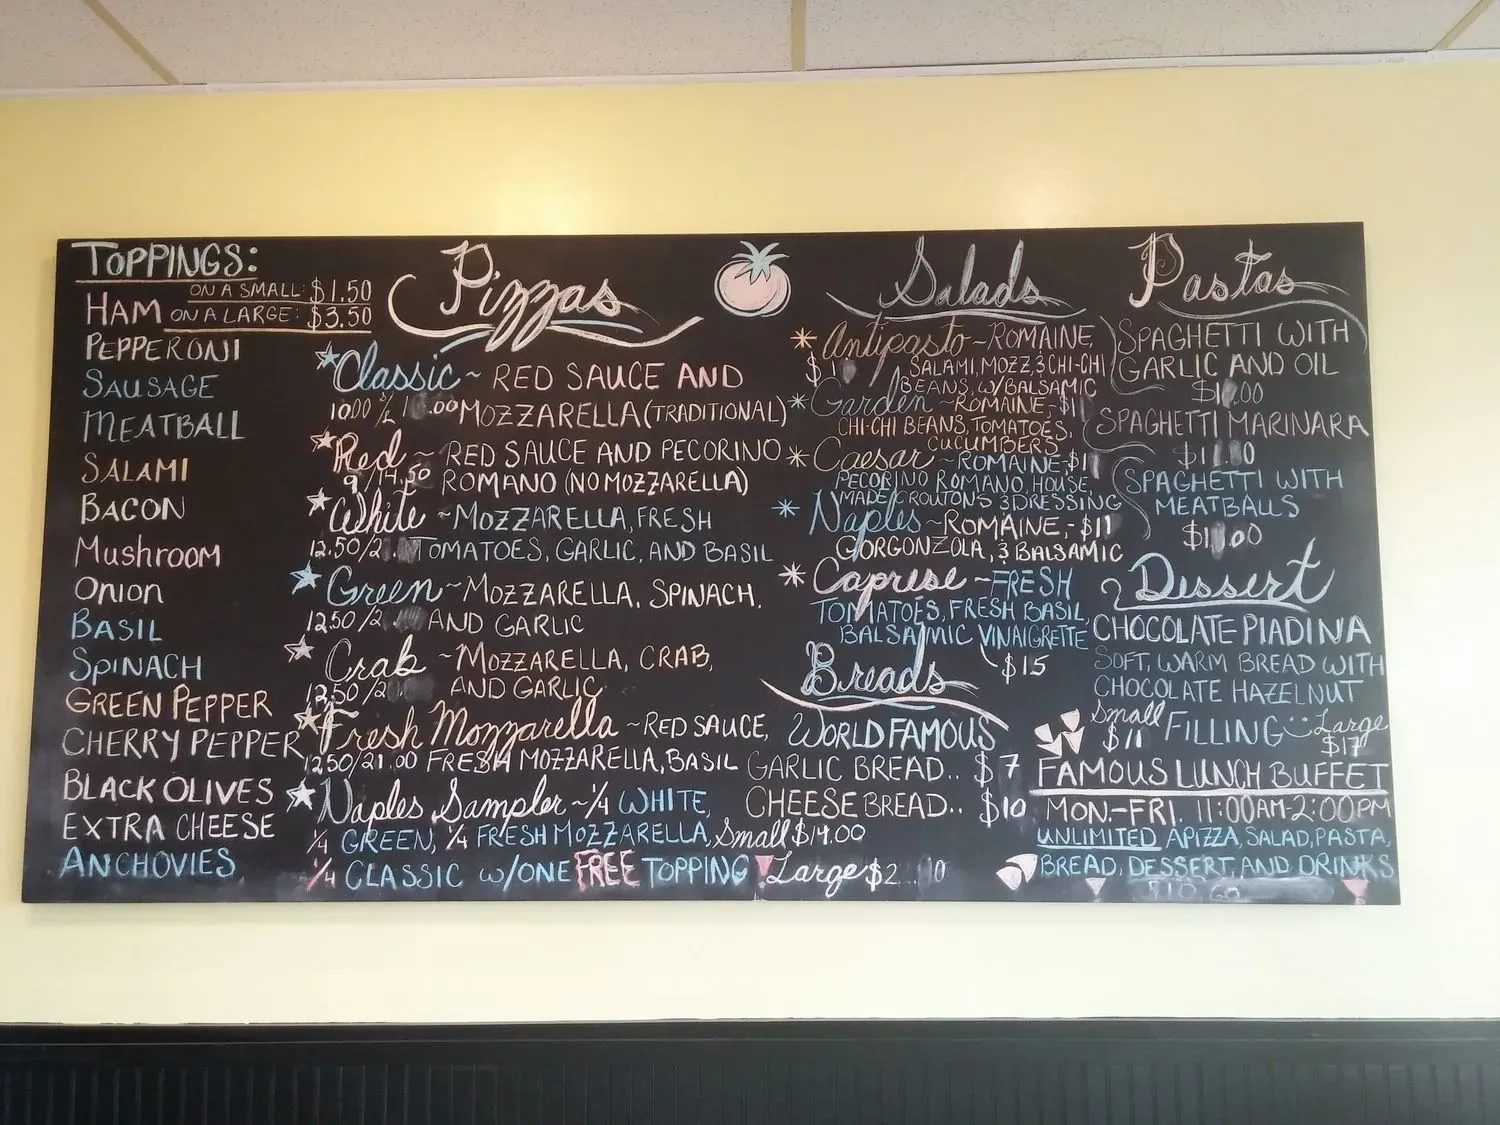 TOPPINGS:
ON A SMALL: $1.50
HAM ON A LARGE: $3.50
PEPPERONI
SAUSAGE
MEATBALL
SALAMI
BACON
Mushroom
Onion
BASIL
SPINACH
GREEN PEPPER
CHERRY PEPPER
BLACK OLIVES
EXTRA CHEESE
ANCHOVIES
Pizzas
Classic ~ RED SAUCE AND
MOZZARELLA (TRADITIONAL)
Red ~ RED SAUCE AND PECORINO
9/14.50 ROMANO (NO MOZZARELLA)
White ~ MOZZARELLA, FRESH
12.50/2 TOMATOES, GARLIC, AND BASIL
Green ~ MOZZARELLA, SPINACH,
12.50/2 AND GARLIC
Crab ~ MOZZARELLA, CRAB,
12.50/2 AND GARLIC
Fresh Mozzarella ~ RED SAUCE,
12.50/21.00 FRESH MOZZARELLA, BASIL
Naples Sampler ~ 1/4 WHITE,
1/4 GREEN, 1/4 FRESH MOZZARELLA, Small $14.00
1/4 CLASSIC w/ONE FREE TOPPING Large
Salads
Antipasto ~ ROMAINE
SALAMI, MOZZ, & CHI-CHI
BEANS, W/BALSAMIC
Garden ~ ROMAINE,
CHI-CHI BEANS, TOMATOES,
CUCUMBERS
Caesar ~ ROMAINE,
PECORINO ROMANO, HOUSE
MADE CROUTONS & DRESSING
Naples ~ ROMAINE, $11
GORGONZOLA, & BALSAMIC
Caprese ~ FRESH
TOMATOES, FRESH BASIL,
BALSAMIC VINAIGRETTE
$15
Breads
WORLD FAMOUS
GARLIC BREAD.. $7
CHEESE BREAD.. $10
Pastas
SPAGHETTI WITH
GARLIC AND OIL
SPAGHETTI MARINARA
SPAGHETTI WITH
MEATBALLS
Dessert
CHOCOLATE PIADINA
SOFT, WARM BREAD WITH
CHOCOLATE HAZELNUT
Small FILLING Large
$11 $17
FAMOUS LUNCH BUFFET
MON.-FRI. 11:00AM-2:00PM
UNLIMITED APIZZA, SALAD, PASTA,
BREAD, DESSERT, AND DRINKS